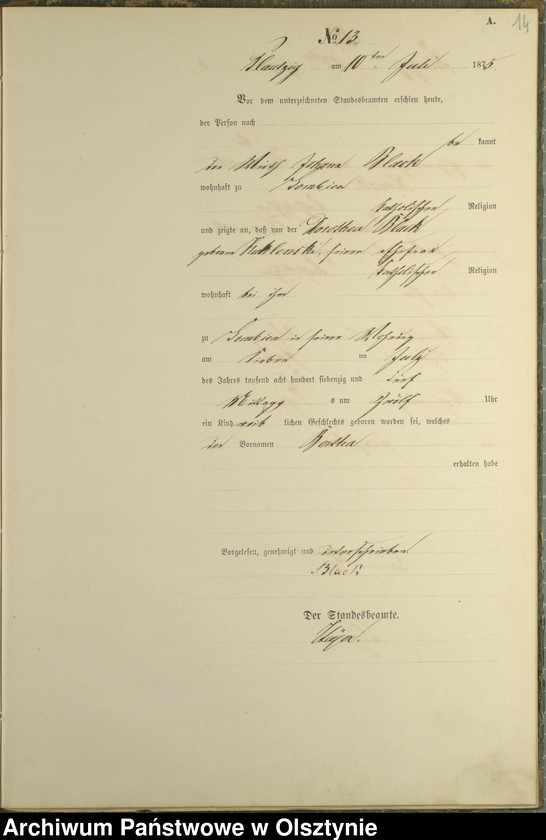 A. 14
No 13.
Plautzig am 10ten Juli 1875
Vor dem unterzeichneten Standesbeamten erschien heute,
der Person nach
be kannt
der Wirth Johann Black
wohnhaft zu
katholischer Religion
und zeigte an, daß von der Dorothea Black
geborene seiner Ehefrau
katholischer Religion
wohnhaft bei ihm
zu in seiner Wohnung
am sieben ten July
des Jahres tausend acht hundert siebenzig und fünf
Mittags um zwölf Uhr
ein Kind weib lichen Geschlechts geboren worden sei, welches
den Vornamen Bertha
erhalten habe
Vorgelesen, genehmigt und unterschrieben
Black
Der Standesbeamte.
Archiwum Państwowe w Olsztynie